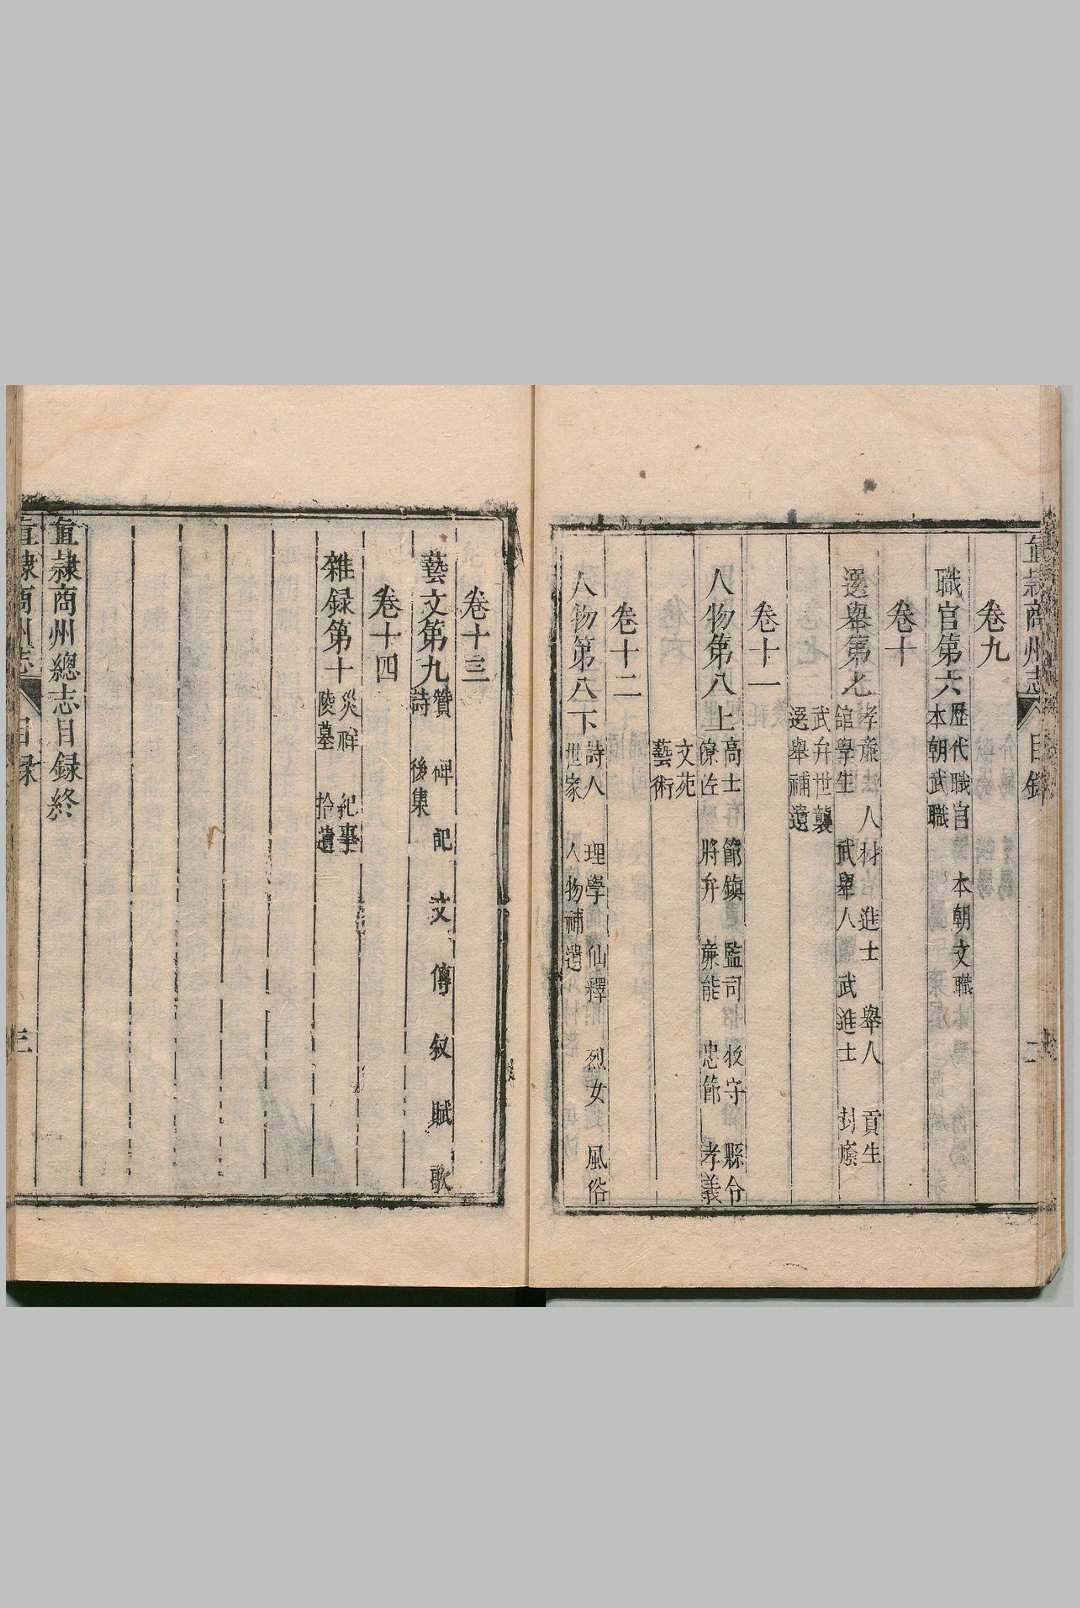 直隸商州志 目錄 二
卷九
職官第六 歷代職官 本朝文職
本朝武職
卷十
選舉第七 孝廉 人材 進士 舉人 貢生
館學生 武舉人 武進士 封廕
武弁世襲
選舉補遺
卷十一
人物第八上 高士 節鎮 監司 牧守 縣令
僚佐 將弁 廉能 忠節 孝義
文苑
藝術
卷十二
人物第八下 詩人 理學 仙釋 烈女 風俗
世家 人物補遺
卷十三
藝文第九 贊 碑 記 文 傳 叙 賦 歌
詩 後集
卷十四
雜録第十 災祥 紀事
陵墓 拾遺
直隸商州總志目録終
直隸商州志 目録 三